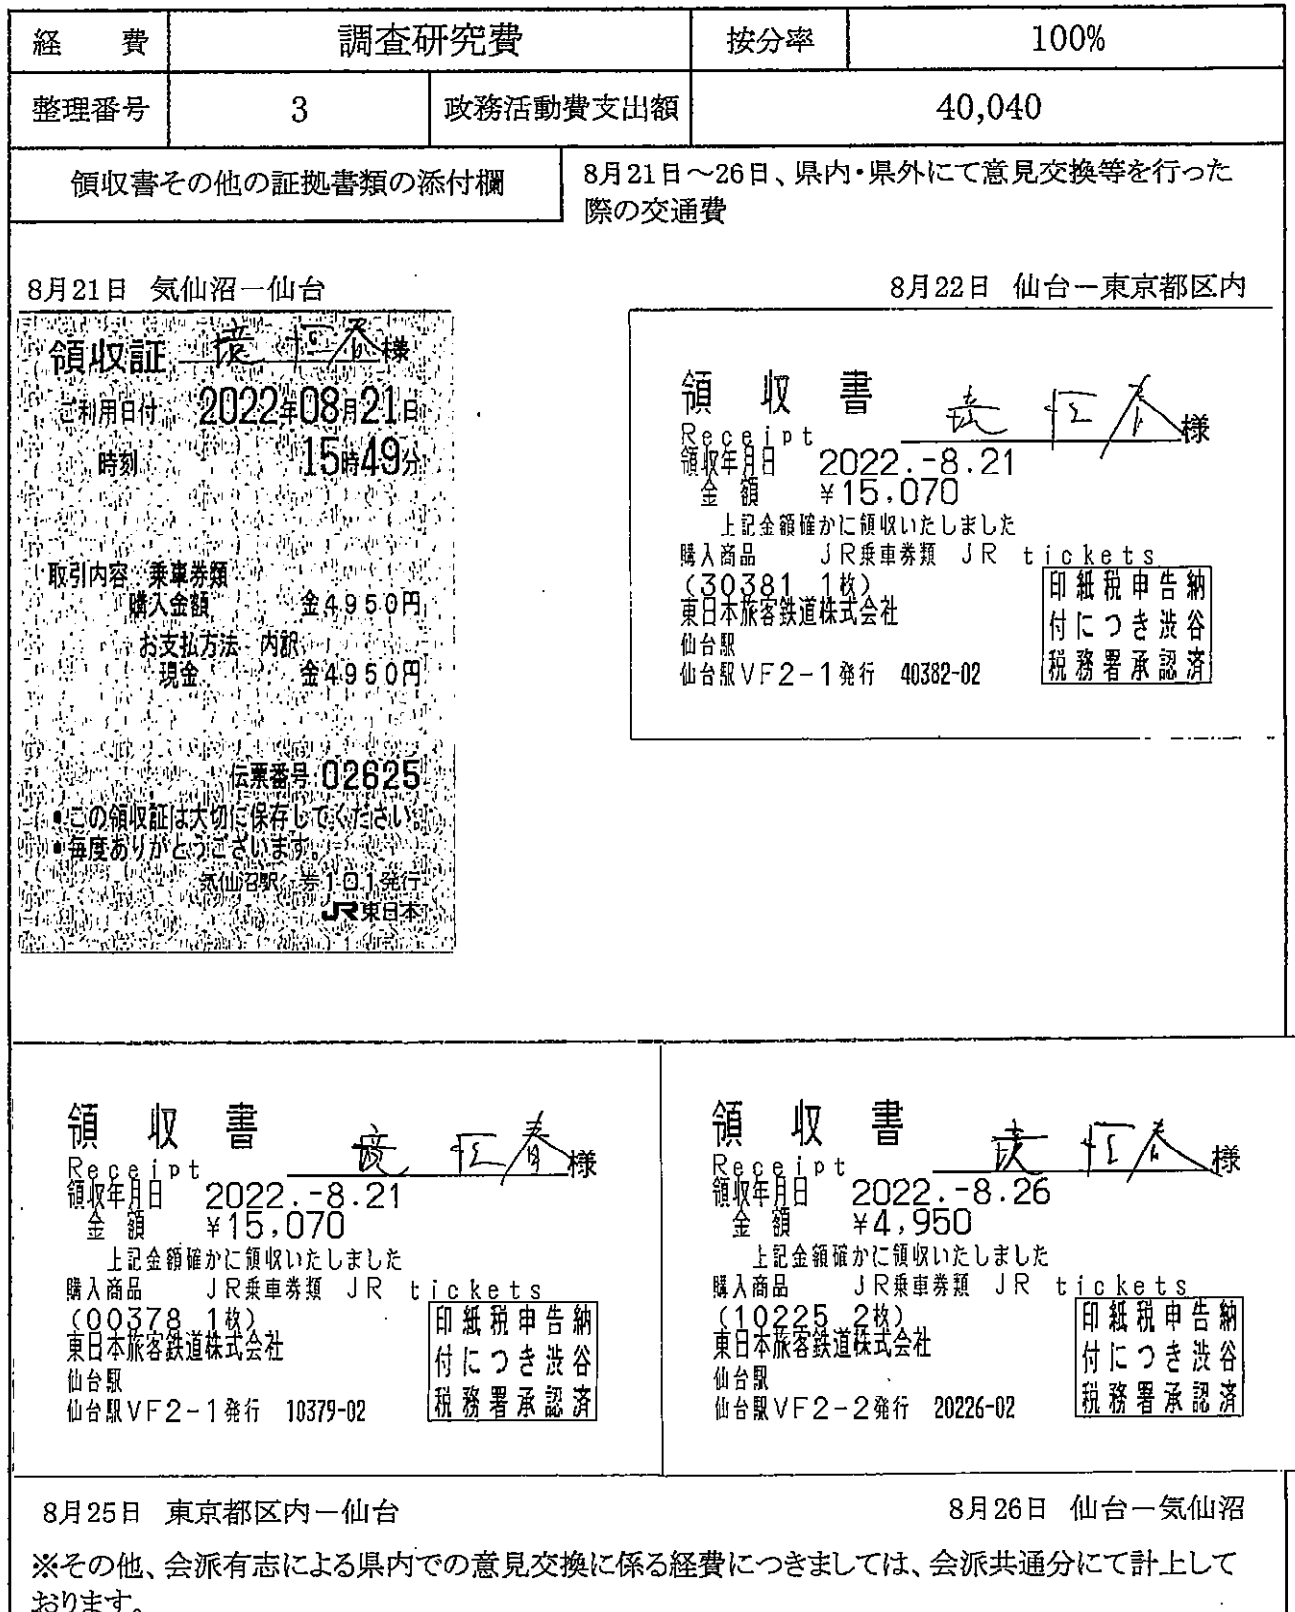 経 費 調査研究費 按分率 100%
整理番号 3 政務活動費支出額 40,040
領収書その他の証拠書類の添付欄
8月21日～26日、県内・県外にて意見交換等を行った
際の交通費
8月21日 気仙沼－仙台
領収証 様
ご利用日付 2022年08月21日
時刻 15時49分
取引内容 乗車券類
購入金額 金4950円
お支払方法 内訳
現金 金4950円
伝票番号 02625
・この領収証は大切に保存してください。
・毎度ありがとうございます。
気仙沼駅 券101発行
JR東日本
8月22日 仙台－東京都区内
領収書 様
Receipt
領収年月日 2022.-8.21
金額 ¥15,070
上記金額確かに領収いたしました
購入商品 JR乗車券類 JR tickets
(30381 1枚)
東日本旅客鉄道株式会社
仙台駅
仙台駅VF2-1発行 40382-02
印紙税申告納
付につき渋谷
税務署承認済
領収書 様
Receipt
領収年月日 2022.-8.21
金額 ¥15,070
上記金額確かに領収いたしました
購入商品 JR乗車券類 JR tickets
(00378 1枚)
東日本旅客鉄道株式会社
仙台駅
仙台駅VF2-1発行 10379-02
印紙税申告納
付につき渋谷
税務署承認済
8月25日 東京都区内－仙台
領収書 様
Receipt
領収年月日 2022.-8.26
金額 ¥4,950
上記金額確かに領収いたしました
購入商品 JR乗車券類 JR tickets
(10225 2枚)
東日本旅客鉄道株式会社
仙台駅
仙台駅VF2-2発行 20226-02
印紙税申告納
付につき渋谷
税務署承認済
8月26日 仙台－気仙沼
※その他、会派有志による県内での意見交換に係る経費につきましては、会派共通分にて計上して
おります。